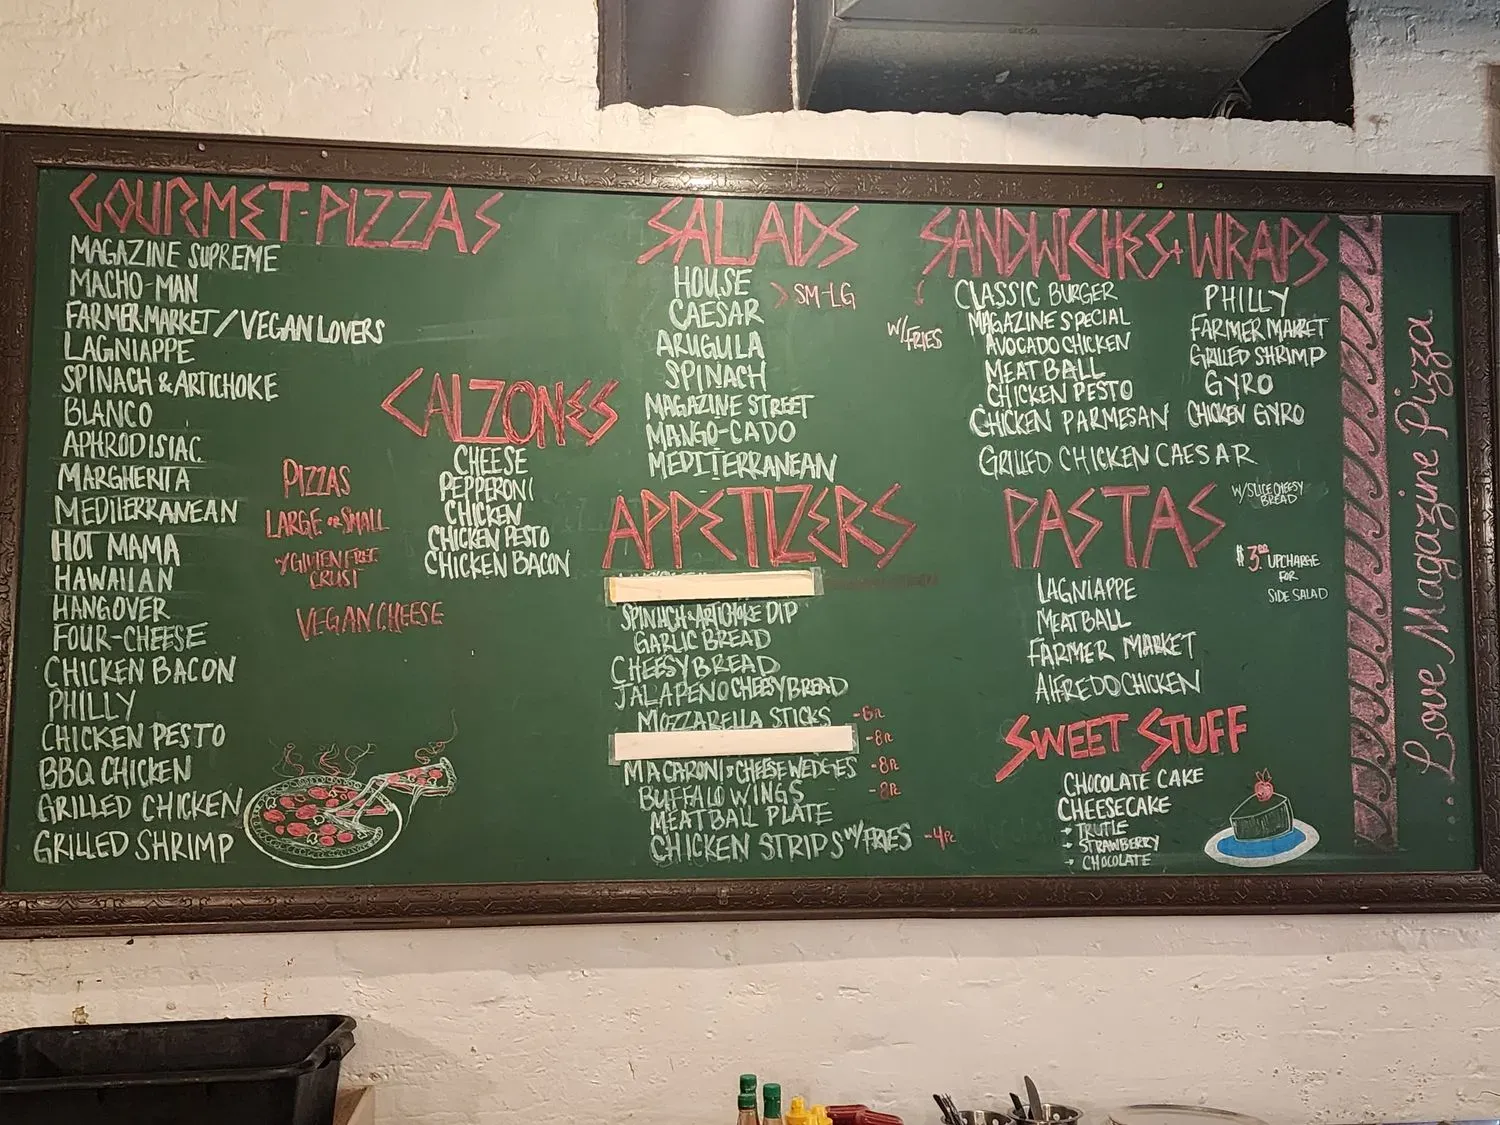 GOURMET-PIZZAS
MAGAZINE SUPREME
MACHO-MAN
FARMERMARKET/VEGAN LOVERS
LAGNIAPPE
SPINACH & ARTICHOKE
BLANCO
APHRODISIAC
MARGHERITA
MEDITERRANEAN
HOT MAMA
HAWAIIAN
HANGOVER
FOUR-CHEESE
CHICKEN BACON
PHILLY
CHICKEN PESTO
BBQ CHICKEN
GRILLED CHICKEN
GRILLED SHRIMP
PIZZAS
LARGE OR SMALL
W/GLUTEN FREE
CRUST
VEGAN CHEESE
CALZONES
CHEESE
PEPPERONI
CHICKEN
CHICKEN PESTO
CHICKEN BACON
SALADS
HOUSE
CAESAR
> SM-LG
ARUGULA
SPINACH
MAGAZINE STREET
MANGO-CADO
MEDITERRANEAN
APPETIZERS
SPINACH & ARTICHOKE DIP
GARLIC BREAD
CHEESY BREAD
JALAPENO CHEESY BREAD
MOZZARELLA STICKS -6PC
-8PC
MACARONI & CHEESE WEDGES -8PC
BUFFALO WINGS -8PC
MEATBALL PLATE
CHICKEN STRIPS W/FRIES -4PC
SANDWICHES + WRAPS
W/FRIES
CLASSIC BURGER
MAGAZINE SPECIAL
AVOCADO CHICKEN
MEATBALL
CHICKEN PESTO
CHICKEN PARMESAN
GRILLED CHICKEN CAESAR
PHILLY
FARMER MARKET
GRILLED SHRIMP
GYRO
CHICKEN GYRO
PASTAS
W/SLICE CHEESY
BREAD
$3.00 UPCHARGE
FOR
SIDE SALAD
LAGNIAPPE
MEATBALL
FARMER MARKET
ALFREDO CHICKEN
SWEET STUFF
CHOCOLATE CAKE
CHEESECAKE
→ TRUTLE
→ STRAWBERRY
→ CHOCOLATE
...Love Magazine Pizza